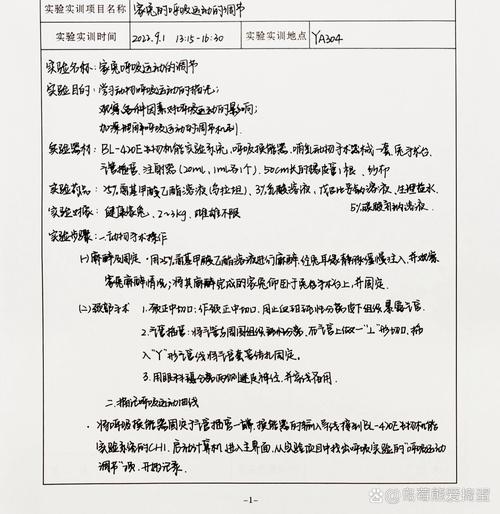 实验实训项目名称 家兔的呼吸运动的调节
实验实训时间 2022.9.1 13:15-16:30 实验实训地点 YA304
实验名称：家兔呼吸运动的调节
实验目的：学习动物呼吸运动的描记；
观察各种因素对呼吸运动的影响；
加深理解呼吸运动的调节机制
实验器材：BL-420E生物机能实验系统，呼吸换能器，哺乳动物手术器械一套，兔手术台，
气管插管，注射器(20mL，1mL各1个)，50cm长的橡皮管1根，纱布
实验药品：25%氨基甲酸乙酯溶液(乌拉坦)，3%乳酸溶液，戊巴比妥钠溶液，生理盐水，
5%碳酸氢钠溶液
实验对象：健康家兔，2~3kg，雌雄不限
实验步骤：一、动物手术操作
(1)麻醉及固定：用25%氨基甲酸乙酯溶液进行麻醉，从兔耳缘静脉缓慢注入，并观察
家兔麻醉情况；将其麻醉完成的家兔仰卧于兔手术台上，并固定。
(2)颈部手术 1.颈正中切口：作颈正中切口，用止血钳钝性分离皮下组织，暴露气管
2.气管插管：将气管与周围组织分离，在气管上做一"⊥"形切口，插
入"Y"形气管插管套管结扎固定。
3.用眼科镊分离两侧迷走神经，并穿线备用
二、描记呼吸运动曲线
将呼吸换能器固定于气管插管一端，换能器的输入导线接到BL-420E生物机能
实验系统的CH1，启动计算机，进入主界面，从实验项目中找出呼吸实验的"呼吸运动
调节"项，开始记录。
-1-
岛莓熊爱蜂蜜